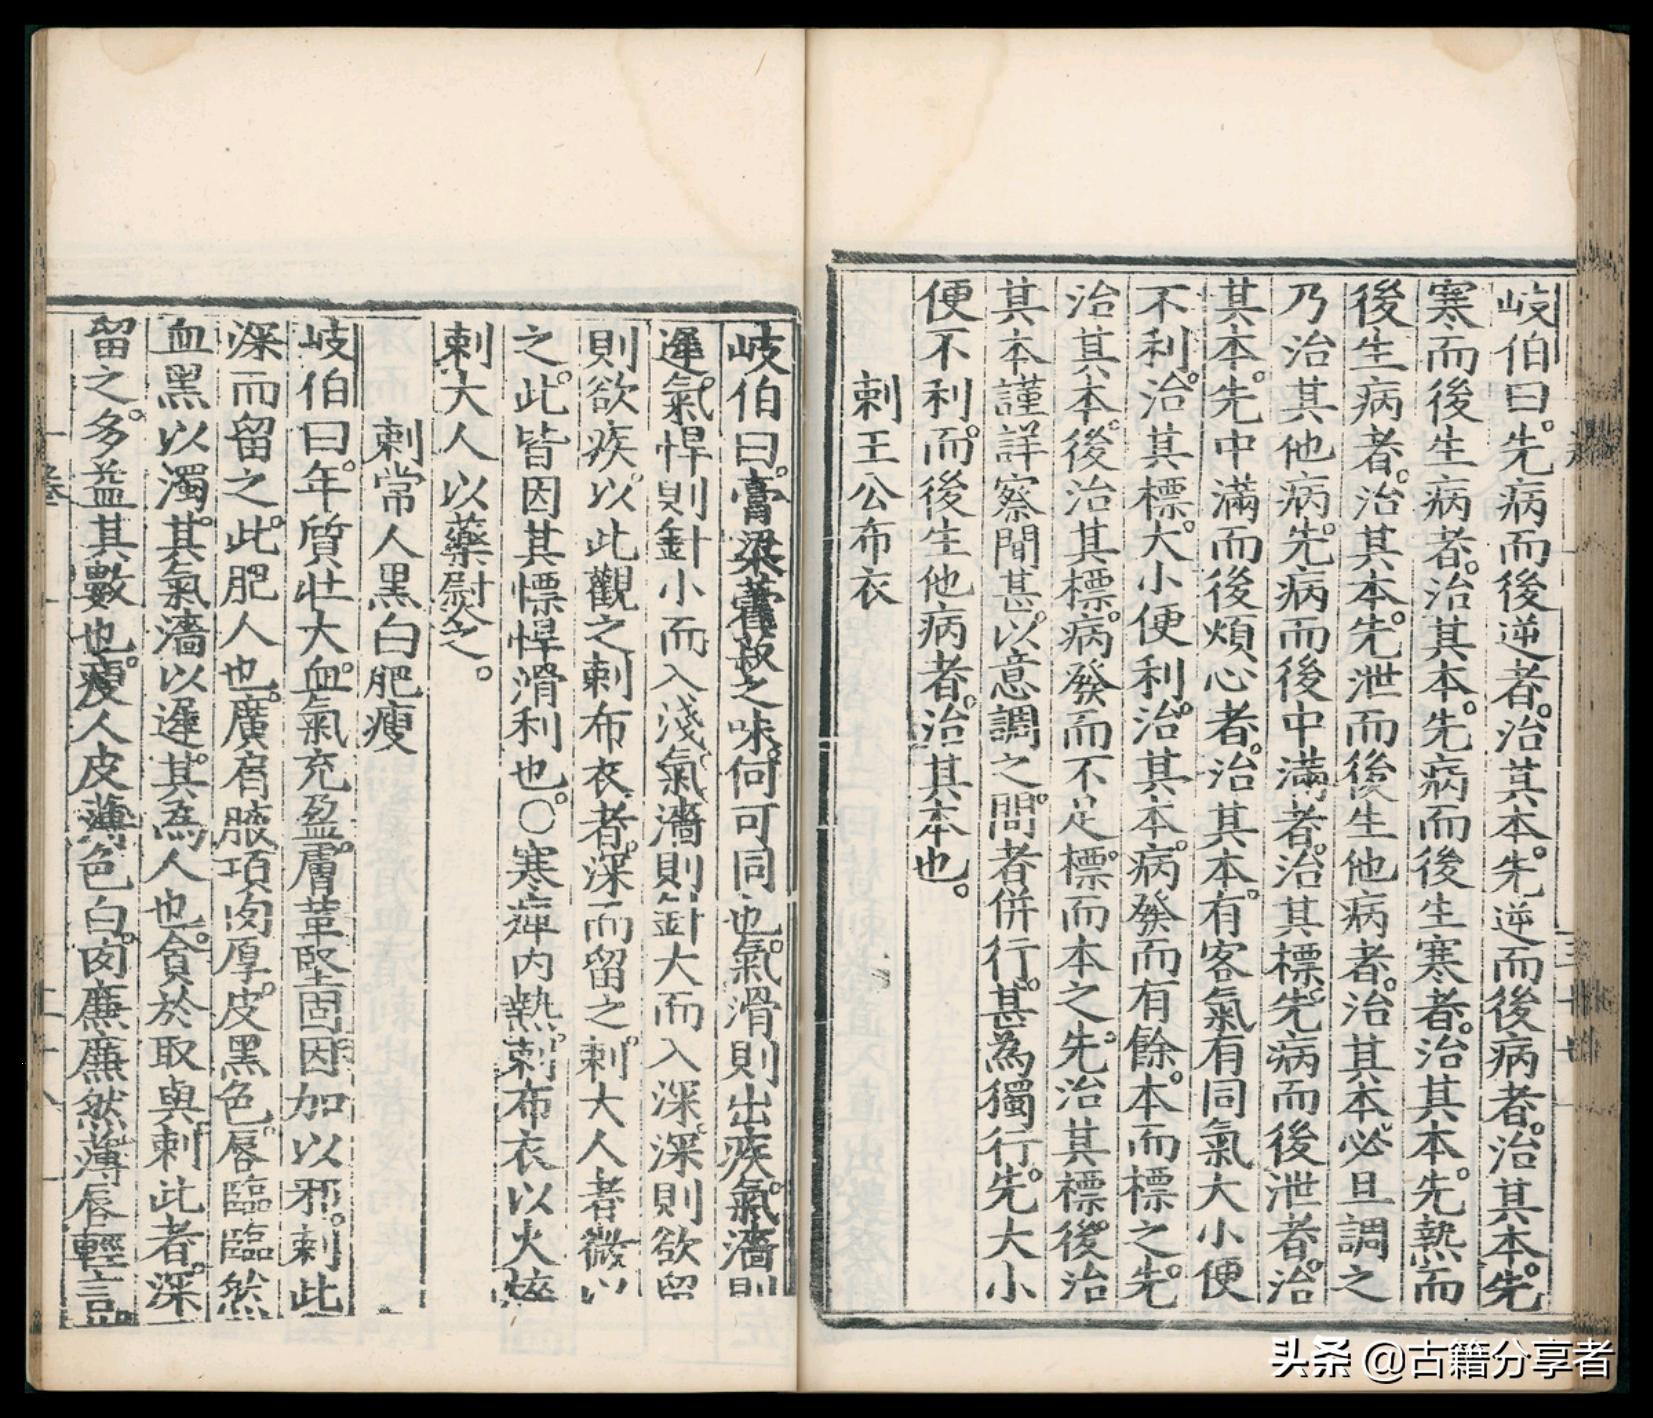 岐伯曰。先病而後逆者。治其本。先逆而後病者。治其本。先
寒而後生病者。治其本。先病而後生寒者。治其本。先熱而
後生病者。治其本。先泄而後生他病者。治其本。必且調之
乃治其他病。先病而後中滿者。治其標。先病而後泄者。治
其本。先中滿而後煩心者。治其本。有客氣有同氣大小便
不利。治其標。大小便利。治其本。病發而有餘。本而標之。先
治其本。後治其標。病發而不足。標而本之。先治其標。後治
其本。謹詳察間甚。以意調之。間者併行。甚為獨行。先大小
便不利。而後生他病者。治其本也。
刺王公布衣
岐伯曰。膏梁藿菽之味。何可同也。氣滑則出疾。氣濇則
遲。氣悍則針小而入淺。氣濇則針大而入深。深則欲留
則欲疾。以此觀之。刺布衣者。深而留之。刺大人者。微以
之。此皆因其慓悍滑利也。○寒痺內熱。刺布衣以火焠
刺大人以藥熨之。
刺常人黑白肥瘦
岐伯曰。年質壯大。血氣充盈。膚革堅固。因加以邪。刺此
深而留之。此肥人也。廣肩腋項。肉厚。皮黑色。唇臨臨然
血黑以濁。其氣濇以遲。其為人也。貪於取與。刺此者。深
留之。多益其數也。瘦人皮薄色白。肉廉廉然。薄唇輕言。
卷
三十七
卷一
二十八
头条 @古籍分享者